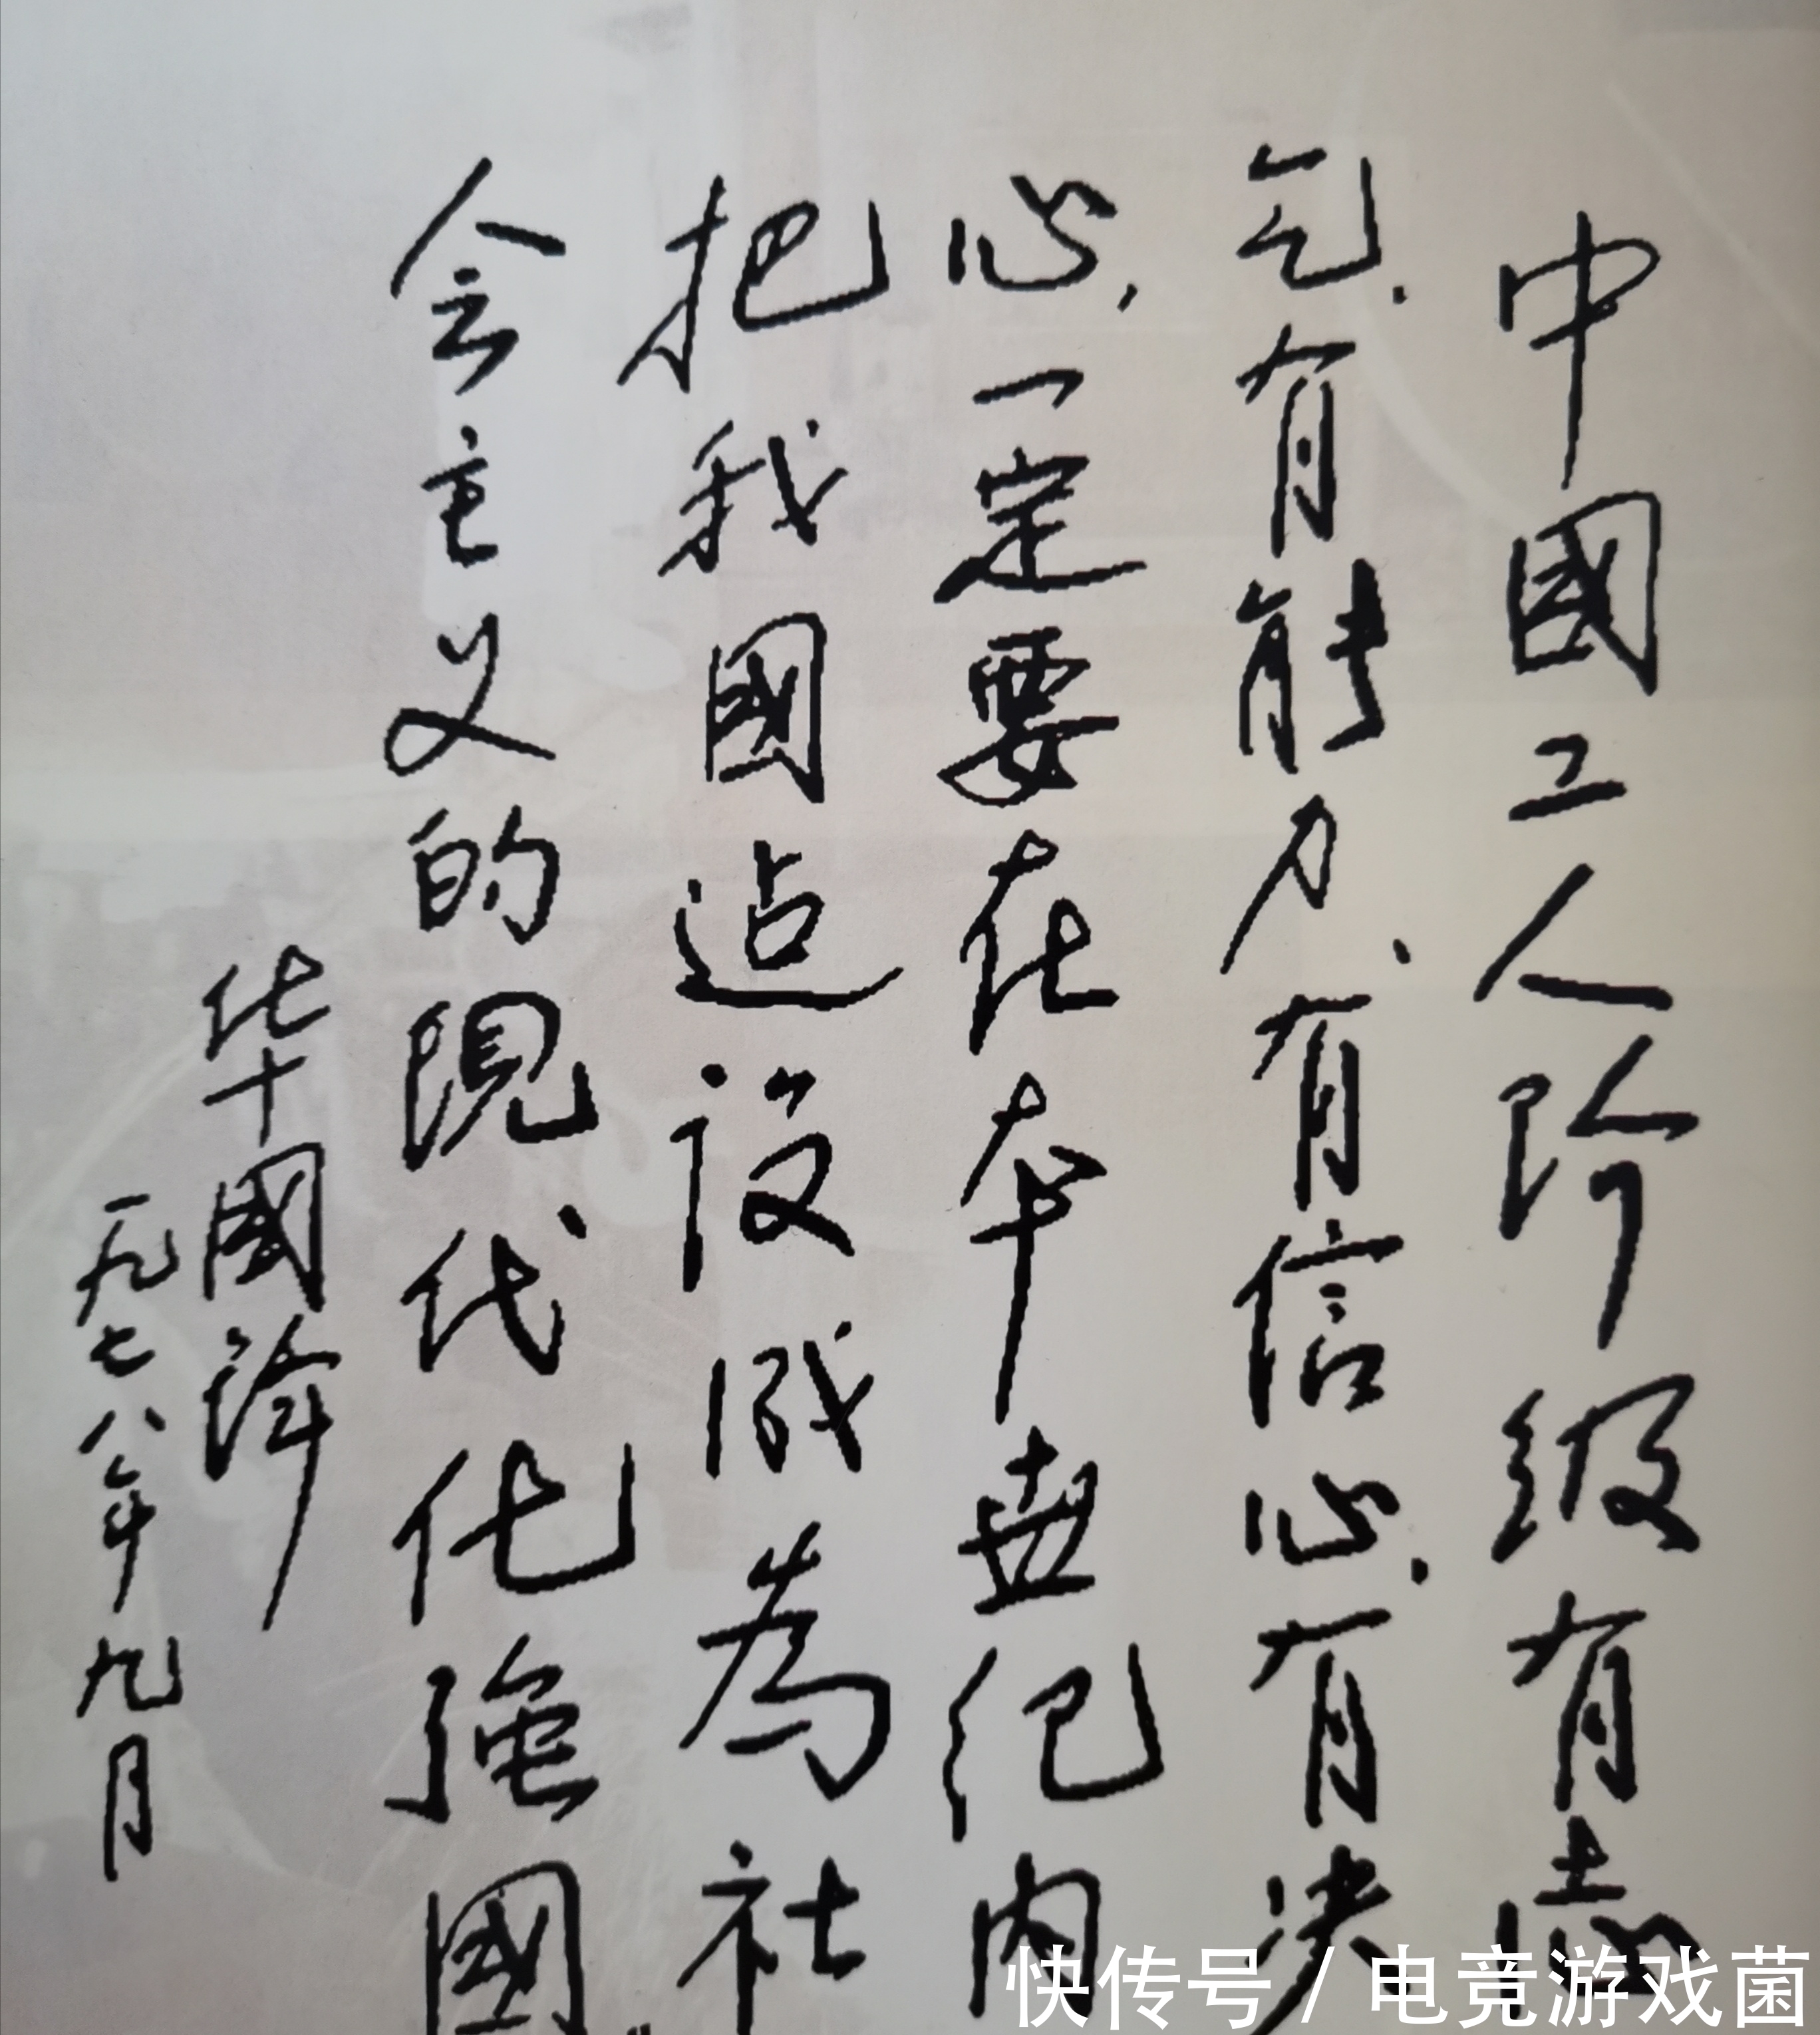 中國工人阶级有志
气.有能力、有信心.有决
心,一定要在本世纪内
把我國迠设成为社
会主义的现代化强國
华國锋
一九七八年九月
快传号/电竞游戏菌